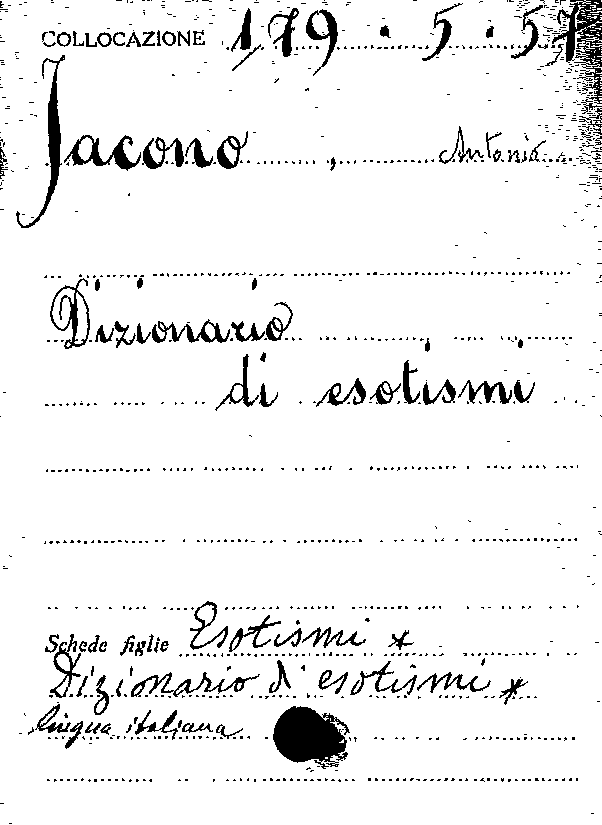 COLLOCAZIONE 179.5.57
Jacono, Antonio
Dizionario
di esotismi
Schede figlie Esotismi *
Dizionario d' esotismi *
lingua italiana